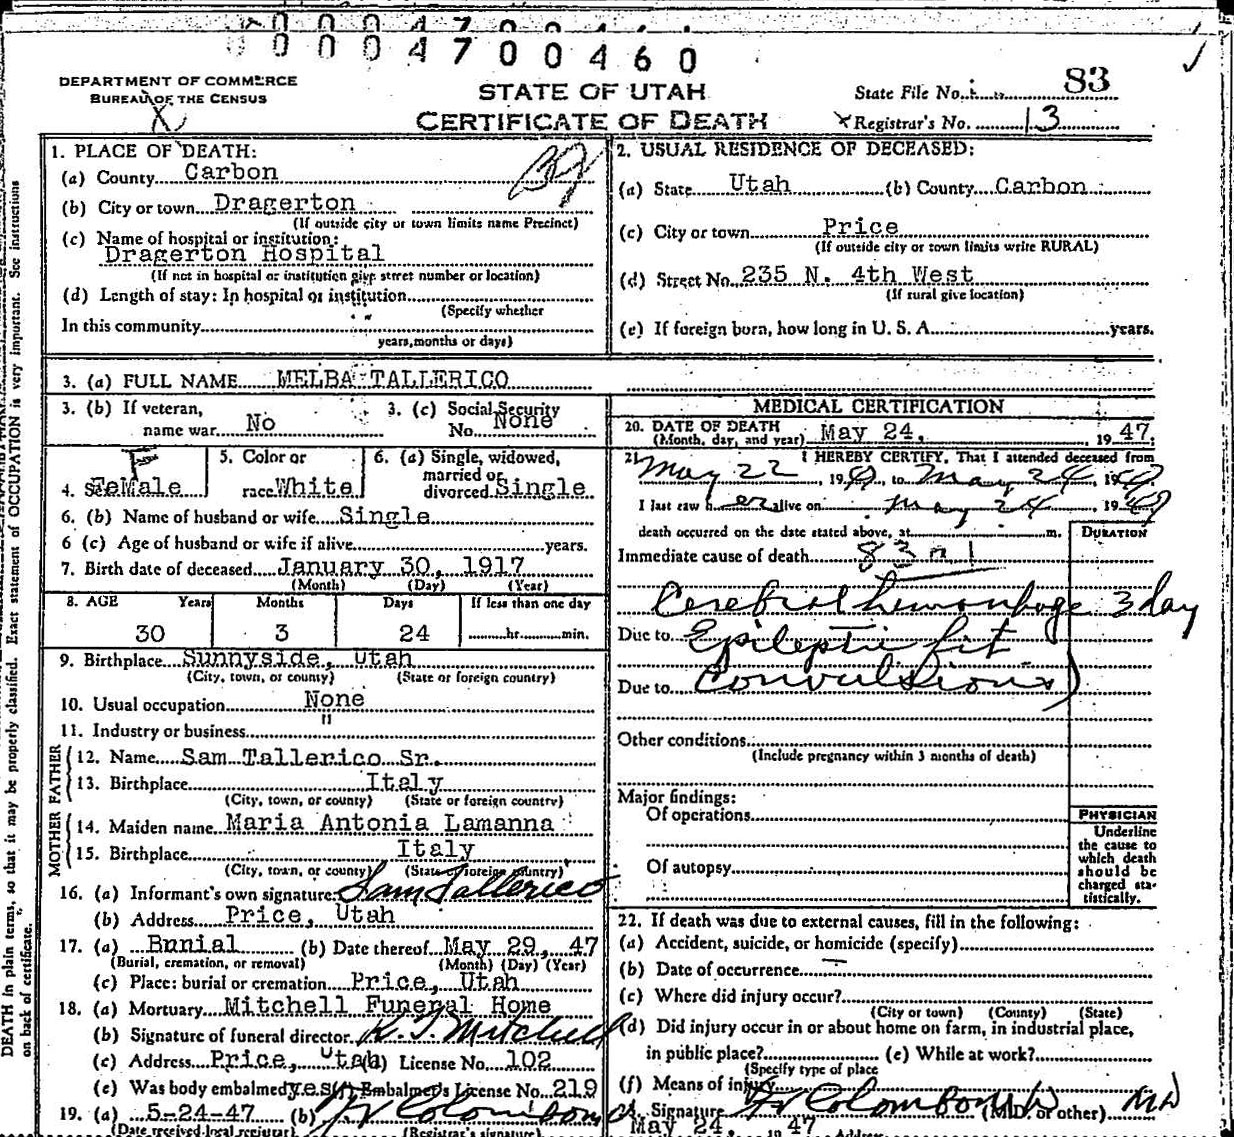 0000 4700460
DEPARTMENT OF COMMERCE
BUREAU OF THE CENSUS
STATE OF UTAH
CERTIFICATE OF DEATH
State File No. 83
Registrar's No. 13
1. PLACE OF DEATH:
(a) County Carbon
(b) City or town Dragerton
(If outside city or town limits name Precinct)
(c) Name of hospital or institution:
Dragerton Hospital
(If not in hospital or institution give street number or location)
(d) Length of stay: In hospital or institution
(Specify whether
In this community
years, months or days)
2. USUAL RESIDENCE OF DECEASED:
(a) State Utah (b) County Carbon
(c) City or town Price
(If outside city or town limits write RURAL)
(d) Street No. 235 N. 4th West
(If rural give location)
(e) If foreign born, how long in U. S. A. years.
3. (a) FULL NAME MELBA TALLERICO
3. (b) If veteran, name war No
3. (c) Social Security No. None
F
4. Sex FeMale
5. Color or race White
6. (a) Single, widowed, married or divorced Single
6. (b) Name of husband or wife Single
6 (c) Age of husband or wife if alive years.
7. Birth date of deceased January 30, 1917
(Month) (Day) (Year)
8. AGE Years Months Days If less than one day
30 3 24 hr. min.
9. Birthplace Sunnyside, Utah
(City, town, or county) (State or foreign country)
10. Usual occupation None
11. Industry or business "
FATHER
12. Name Sam Tallerico Sr.
13. Birthplace Italy
(City, town, or county) (State or foreign country)
MOTHER
14. Maiden name Maria Antonia Lamanna
15. Birthplace Italy
(City, town, or county) (State or foreign country)
16. (a) Informant's own signature Sam Tallerico
(b) Address Price, Utah
17. (a) Bunial (b) Date thereof May 29, 47
(Burial, cremation, or removal) (Month) (Day) (Year)
(c) Place: burial or cremation Price, Utah
18. (a) Mortuary Mitchell Funeral Home
(b) Signature of funeral director K. T. Mitchell
(c) Address Price, Utah (d) License No. 102
(e) Was body embalmed yes Embalmer's License No. 219
19. (a) 5-24-47 (b) Colombo
(Date received local registrar) (Registrar's signature)
MEDICAL CERTIFICATION
20. DATE OF DEATH
(Month, day, and year) May 24, 1947.
21. I HEREBY CERTIFY, That I attended deceased from
May 22, 1947, to May 24, 1947.
I last saw her alive on May 24 1947
death occurred on the date stated above, at m.
DURATION
Immediate cause of death 83 a 1
Cerebral hemorrhage 3 day
Due to Epileptic fit
Due to Convulsions)
Other conditions
(Include pregnancy within 3 months of death)
Major findings:
Of operations
Of autopsy
PHYSICIAN
Underline
the cause to
which death
should be
charged sta-
tistically.
22. If death was due to external causes, fill in the following:
(a) Accident, suicide, or homicide (specify)
(b) Date of occurrence
(c) Where did injury occur?
(City or town) (County) (State)
(d) Did injury occur in or about home on farm, in industrial place,
in public place? (e) While at work?
(Specify type of place
(f) Means of injury
Signature Colombo MD (M.D. or other) MD
May 24, 1947 Address
DEATH in plain terms, so that it may be properly classified. Exact statement of OCCUPATION is very important. See instructions
on back of certificate.